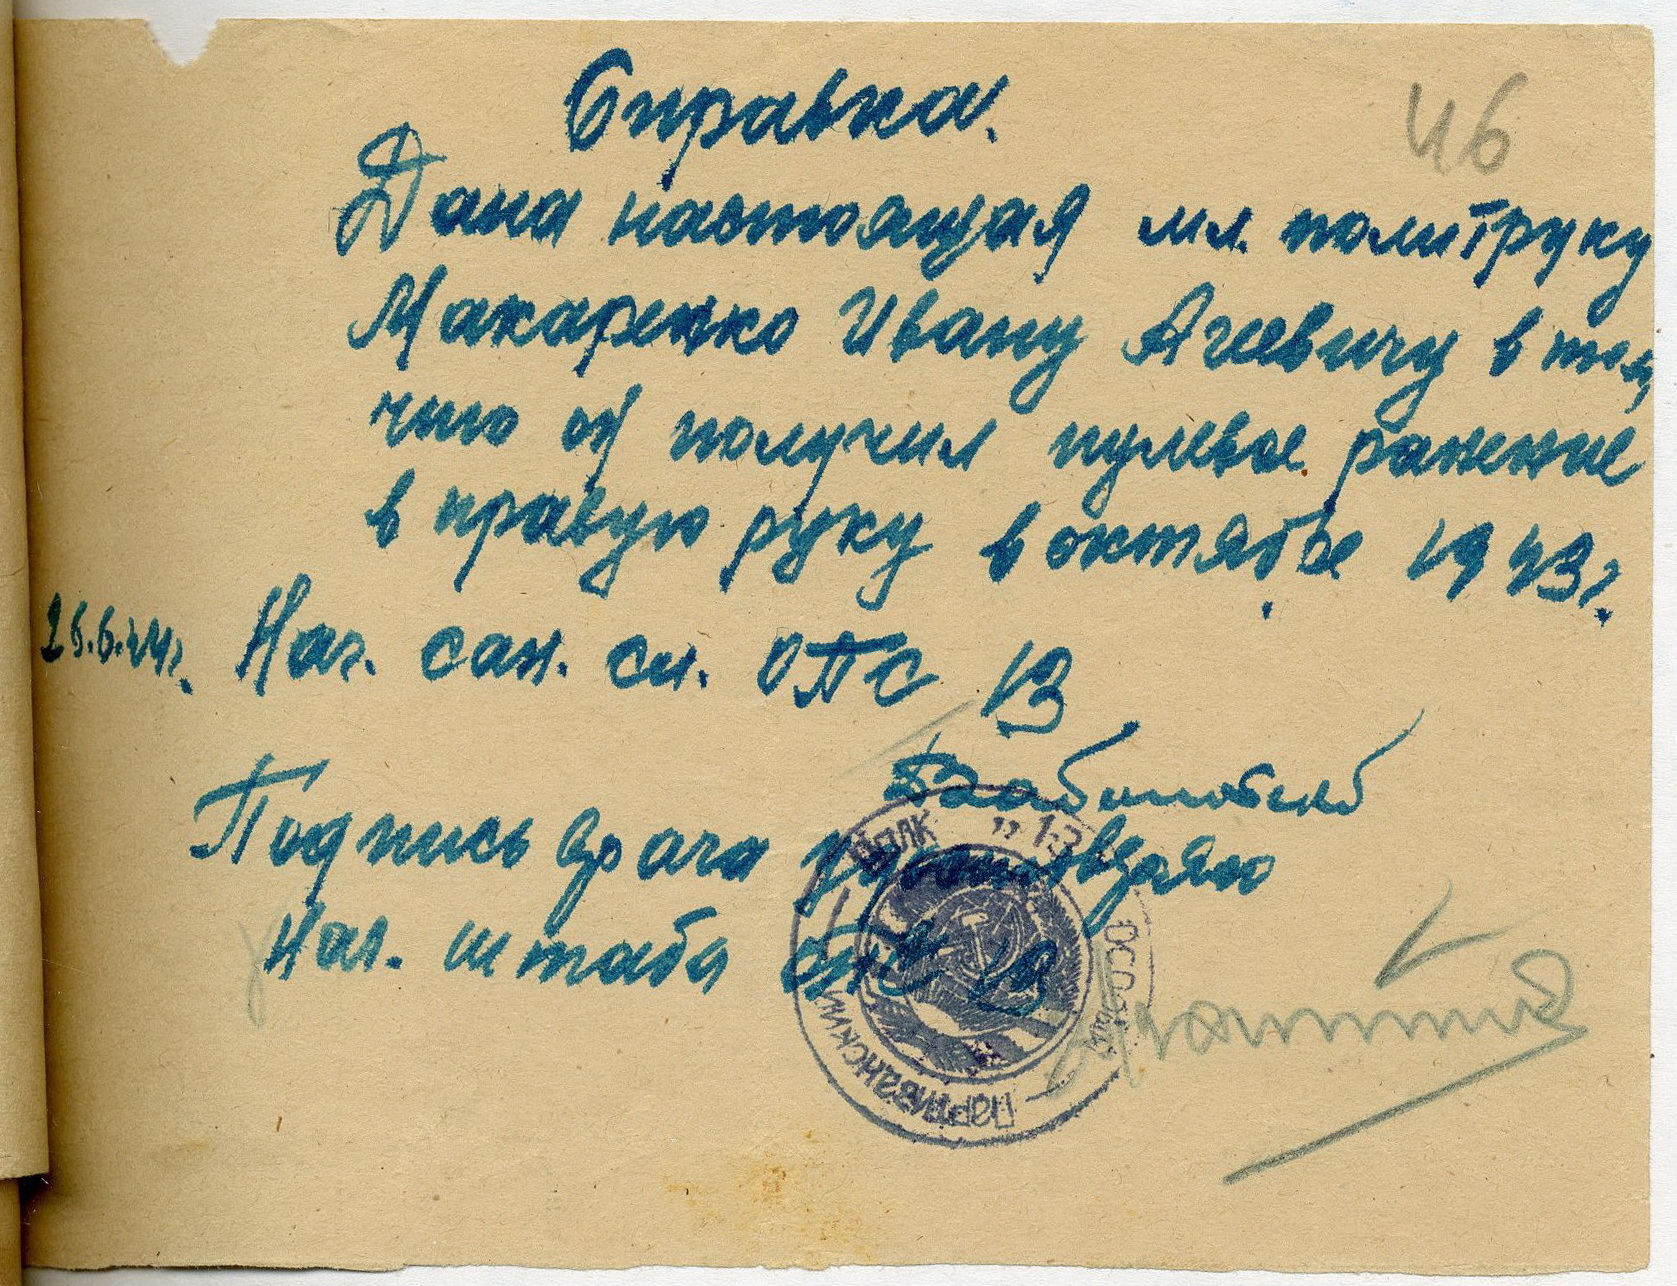 46
Справка.
Дана настоящая мл. политруку
Макаренко Ивану Агеевичу в том,
что он получил пулевое ранение
в правую руку в октябре 1943 г.
26.6.44г. Нач. сан. сл. ОПС 13
Подпись врача удостоверяю
Нач. штаба ОПС 13
Полк „13
Партизанский